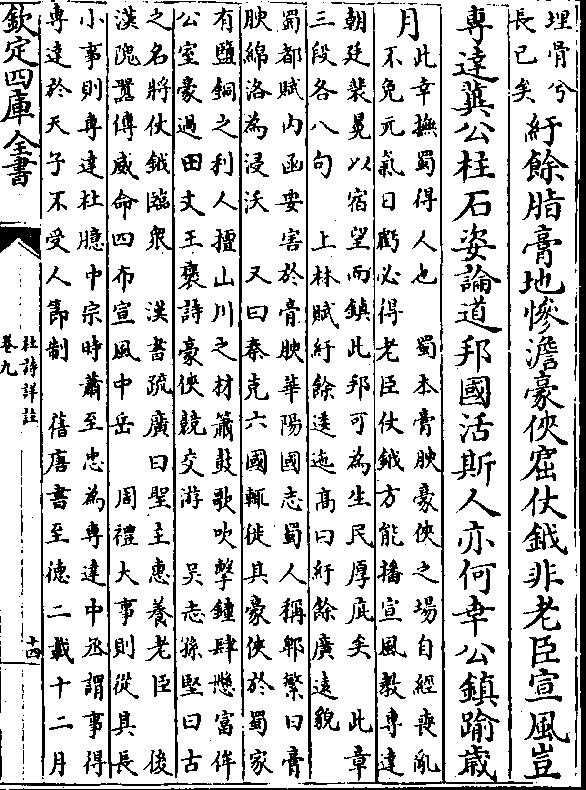 埋骨兮
長已矣
紆餘脂膏地慘澹豪俠窟仗鉞非老臣宣風豈
專達冀公柱石姿論道邦國活斯人亦何幸公鎮踰歲
月
此幸撫蜀得人也　蜀本膏腴豪俠之場自經喪亂
不免元氣日虧必得老臣仗鉞方能播宣風教專達
朝廷裴冕以宿望而鎮此邦可為生民厚庇矣　此章
三段各八句　上林賦紆餘逶迤高曰紆餘廣遠貌
蜀都賦内函要害於膏腴華陽國志蜀人稱郫繁曰膏
腴綿洛為浸沃　又曰秦克六國輒徙其豪俠於蜀家
有鹽銅之利人擅山川之材簫鼓歌吹擊鐘肆懸富侔
公室豪過田文王褒詩豪俠競交游　吳志孫堅曰古
之名將仗鉞臨衆　漢書疏廣曰聖主惠養老臣　後
漢隗囂傳威命四布宣風中岳　周禮大事則從其長
小事則專達杜臆中宗時蕭至忠為專達中丞謂事得
專達於天子不受人節制　舊唐書至德二載十二月
欽定四庫全書
杜詩詳註
卷九
十四